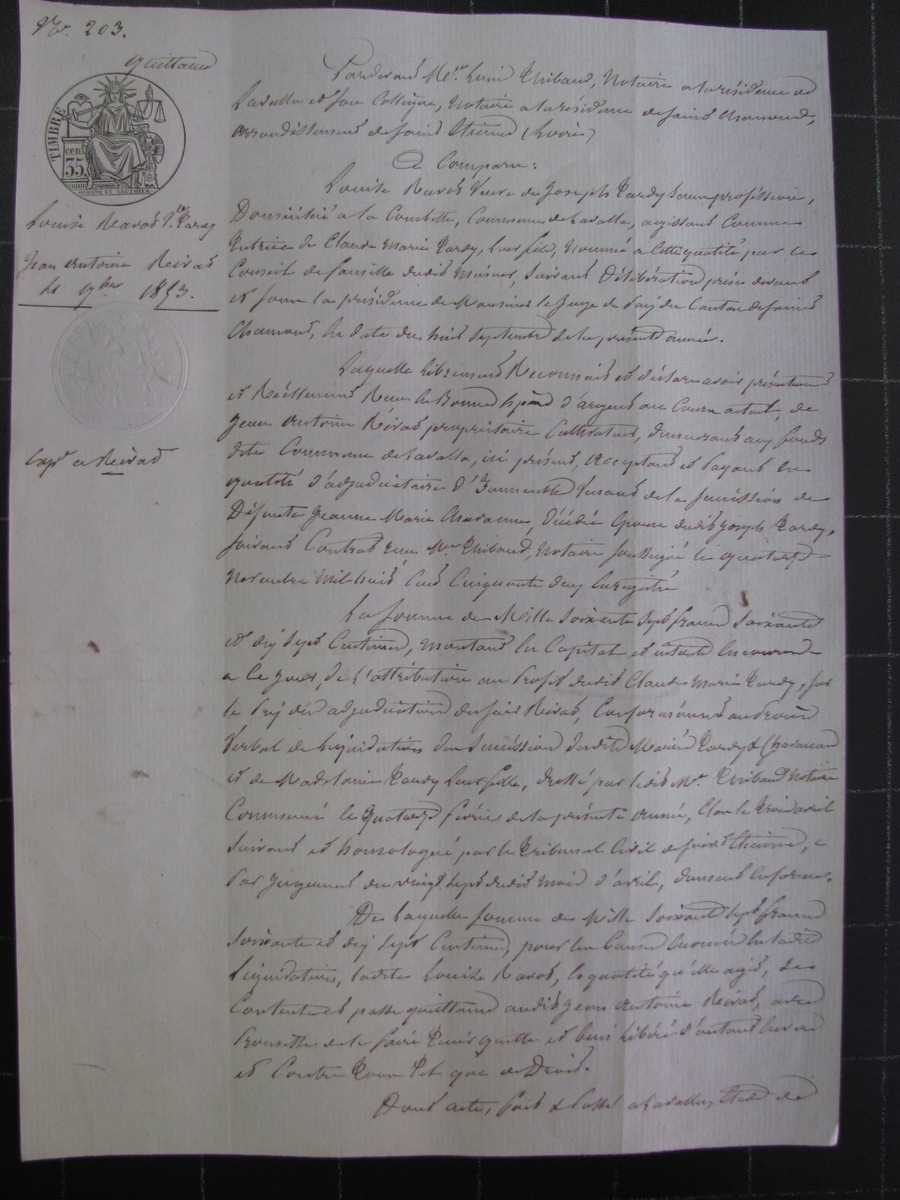 No. 203.
Quittance
TIMBRE
cen
35
Louise Ravat Ve Tardy
Jean Antoine Reivat
le 9bre 1853.
Expn a Reivat
Pardevant Me Thibaud, Notaire a la résidence de
Lavalla et son Collègue, Notaire a la résidence de Saint Chamond,
arrondissement de Saint Etienne (Loire)
A Comparu:
Louise Ravat Veuve de Joseph Tardy sans profession,
Domiciliée a la Combette, Commune de Lavalla, agissant Comme
Tutrice de Claude Marie Tardy, leur fils, Nommée a cette qualité par le
Conseil de famille dudit Mineur, Suivant Délibération prise devant
et sous la présidence de Monsieur le Juge de Paix du Canton de Saint
Chamond, en date du huit Septembre de la présente année.
Laquelle librement Reconnait et déclare avoir présentement
et Réellement Reçu en Bonnes Espèces d'argent au Cours actuel, de
Jean Antoine Reivat propriétaire Cultivateur, demeurant aux fonds
dite Commune de Lavalla, ici présent, acceptant et payant en
qualité d'adjudicataire d'Immeubles Venant de la Succession de
Défunte Jeanne Marie Chavanne, Décédée Epouse dudit Joseph Tardy,
suivant Contrat reçu Me Thibaud, Notaire soussigné le quatorze
novembre mil huit Cent Cinquante deux Enregistré
La Somme de Mille Soixante Sept francs Soixante
et dix sept Centimes, montant en Capital et intérêts encourus
a Ce jour, de l'attribution au Profit dudit Claude Marie Tardy, sur
le Prix des adjudications dudit Reivat, Conformément au Procès
Verbal de Liquidation des Successions desdits Mariés Tardy & Chavanne
et de Madelaine Tardy leur fille, dressé par ledit Me Thibaud Notaire
Commis le Quatorze février de la présente année, Clos le trois avril
Suivant et homologué par le Tribunal Civil de Saint Etienne,
Par Jugement du vingt sept dudit mois d'avril, dument en forme.
De Laquelle Somme de Mille Soixante Sept francs
Soixante et dix sept Centimes, pour les Causes énoncées en ladite
Liquidation, ladite Louise Ravat, en qualité qu'elle agit, Se
Contente et passe quittance audit Jean Antoine Reivat, avec
Promesse de le faire Tenir quitte et bien libéré d'autant Envers
et Contre Tous Tel que de Droit.
Dont acte, fait & Passé a Lavalla, Etude de